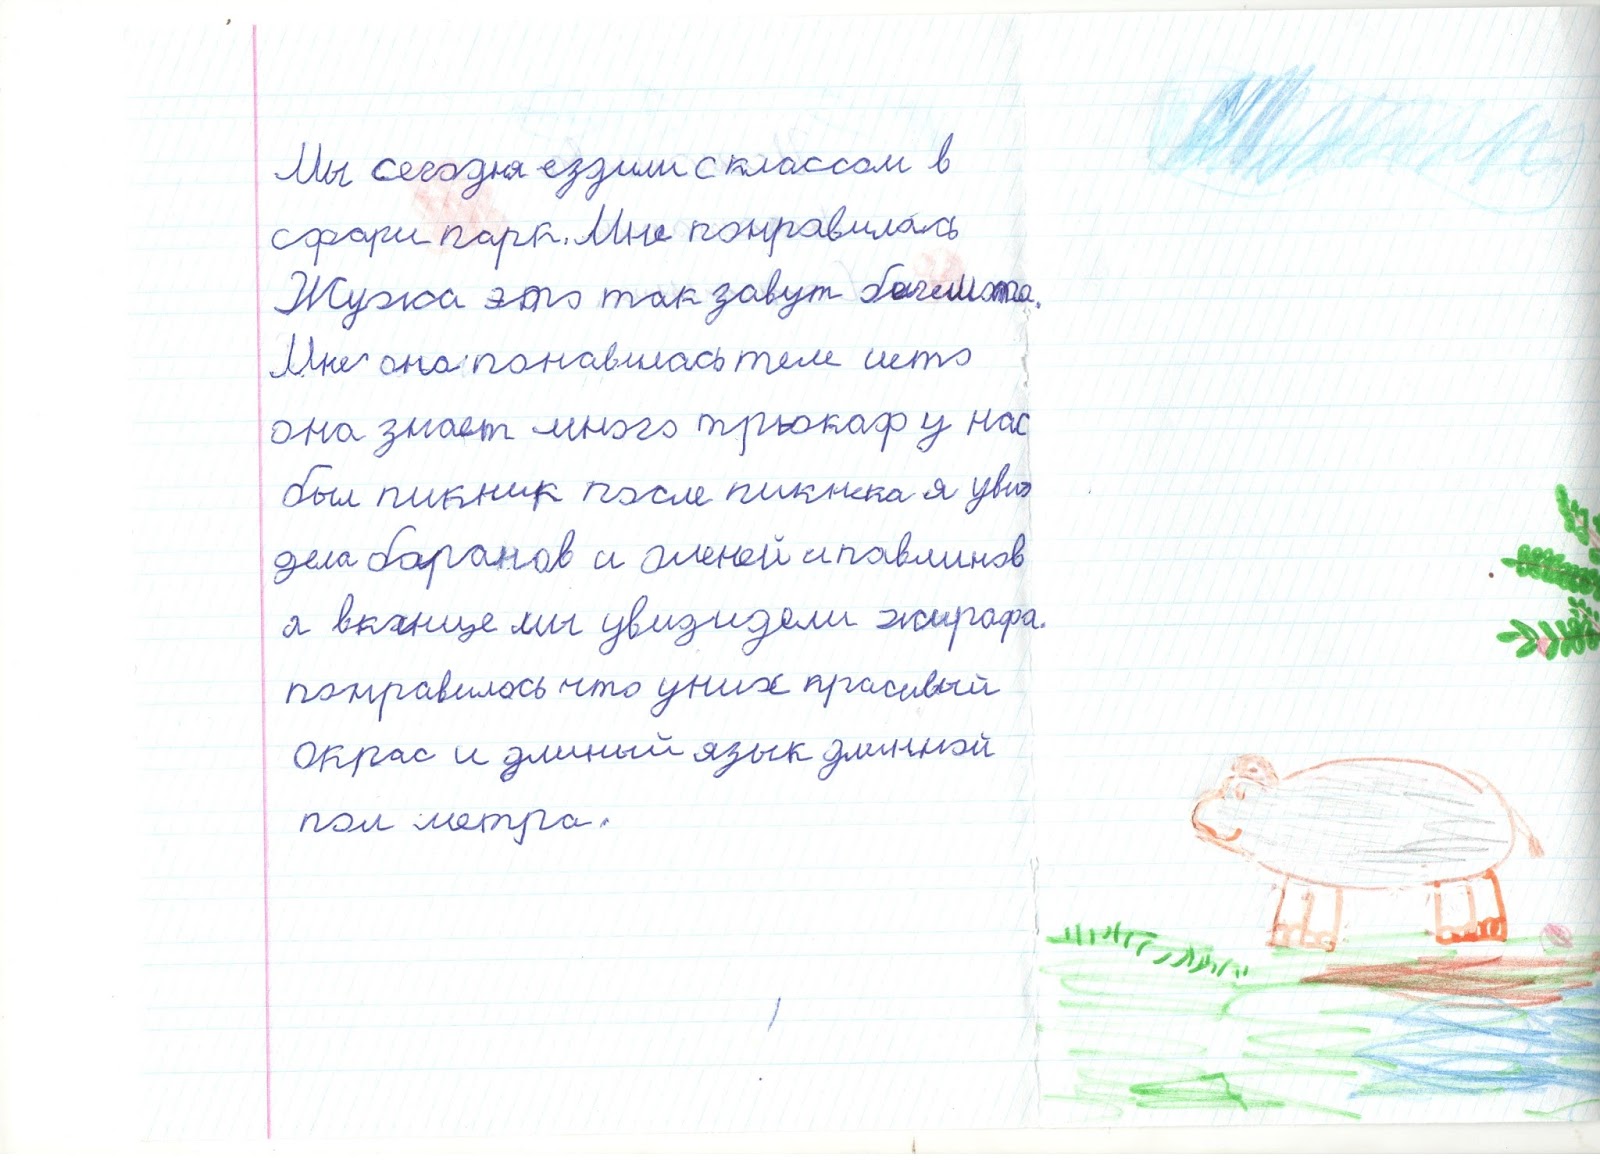 Мы сегодня ездили с классом в
сфари парк. Мне понравилась
Жужа это так завут бегемота.
Мне она понавилась тем што
она знает много трюкаф у нас
был пикник после пикнека я уви
дела баранов и оленей и павлинов
а вконце мы увизидели жирафа.
понравилось что у них красивый
окрас и длиный язык длинной
пол метра.